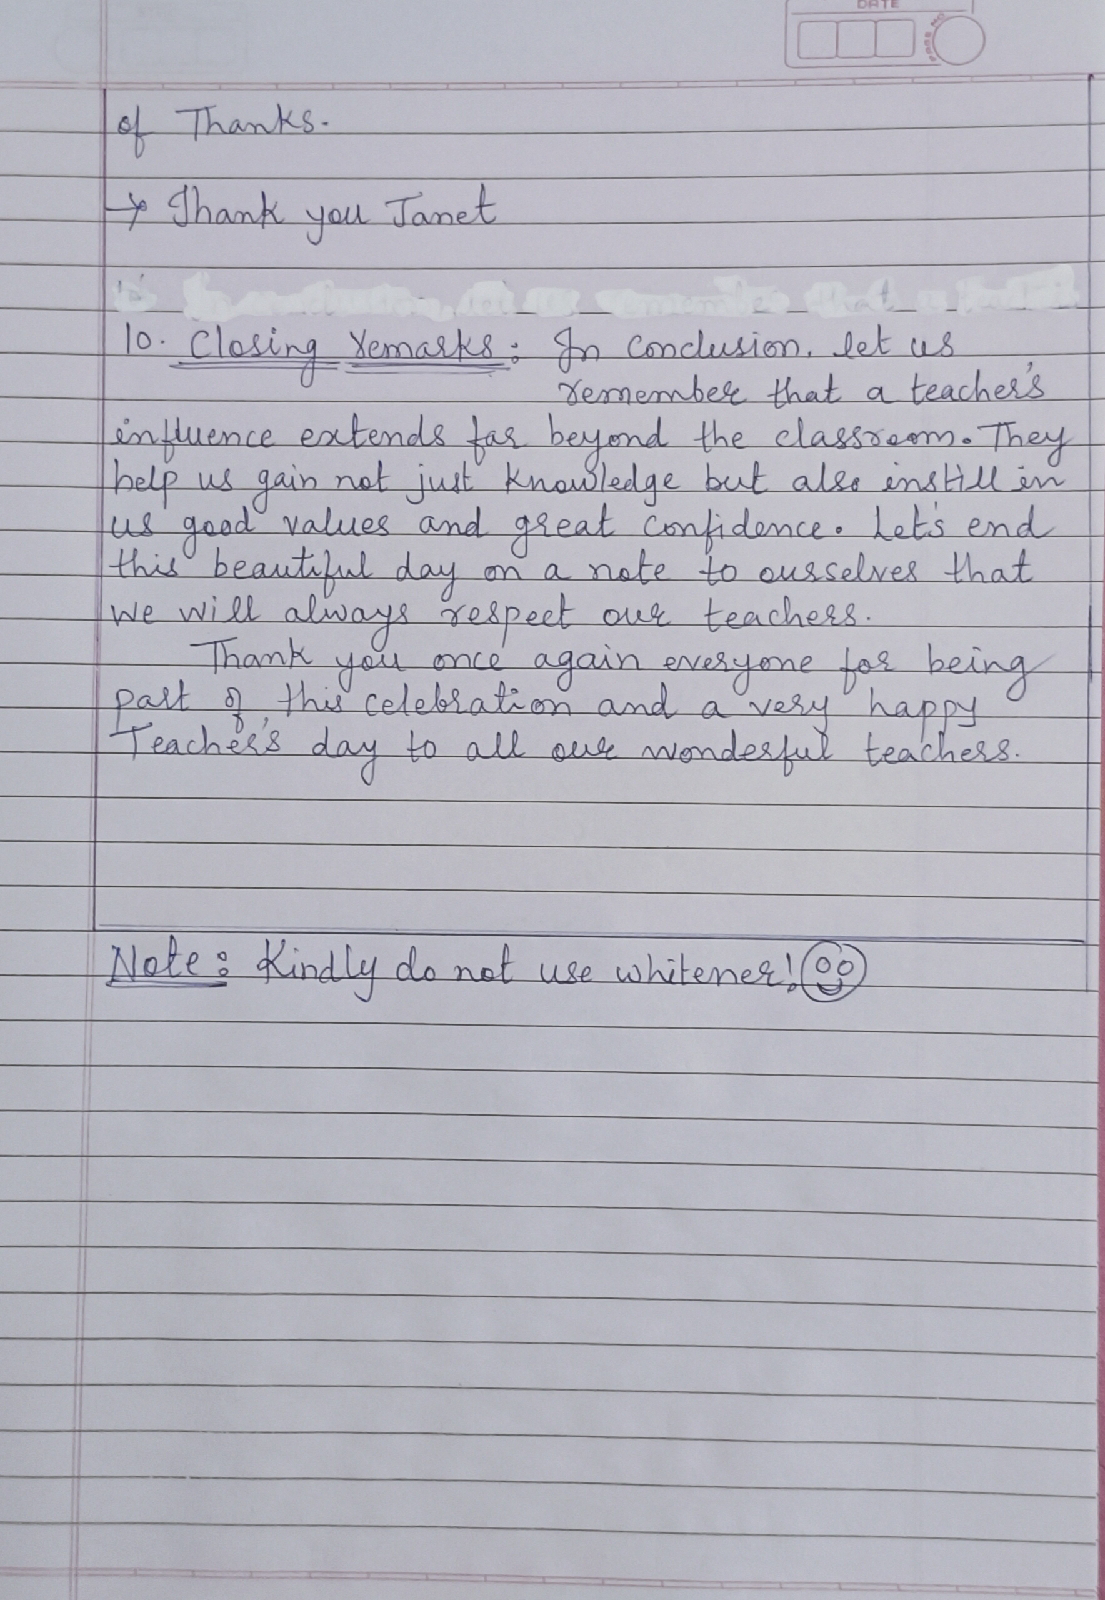 DATE
PAGE NO.
of Thanks.
→ Thank you Janet
In conclusion, let us remember that a
10. Closing remarks: In conclusion, let us
remember that a teacher's
influence extends far beyond the classroom. They
help us gain not just knowledge but also instill in
us good values and great confidence. Let's end
this beautiful day on a note to ourselves that
we will always respect our teachers.
Thank you once again everyone for being
part of this celebration and a very happy
Teacher's day to all our wonderful teachers.
Note: Kindly do not use whitener!